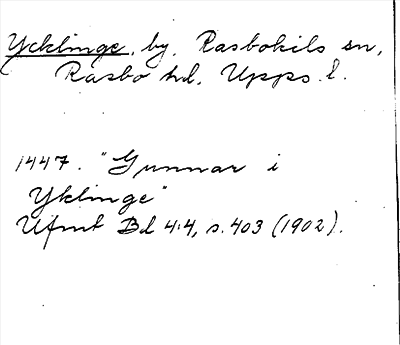 Ycklinge, by, Rasbokils sn,
Rasbo hd, Upps. l.
1447. "Gunnar i
Yklinge"
Ufmt Bd 4:4, s. 403 (1902).